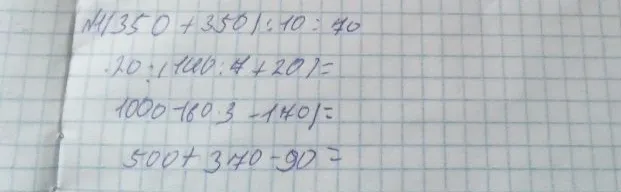 №1(350 + 350) : 10 = 70
20 · (140 : 7 + 20) =
1000 - 180 · 3 - 170) =
500 + 370 - 90 =